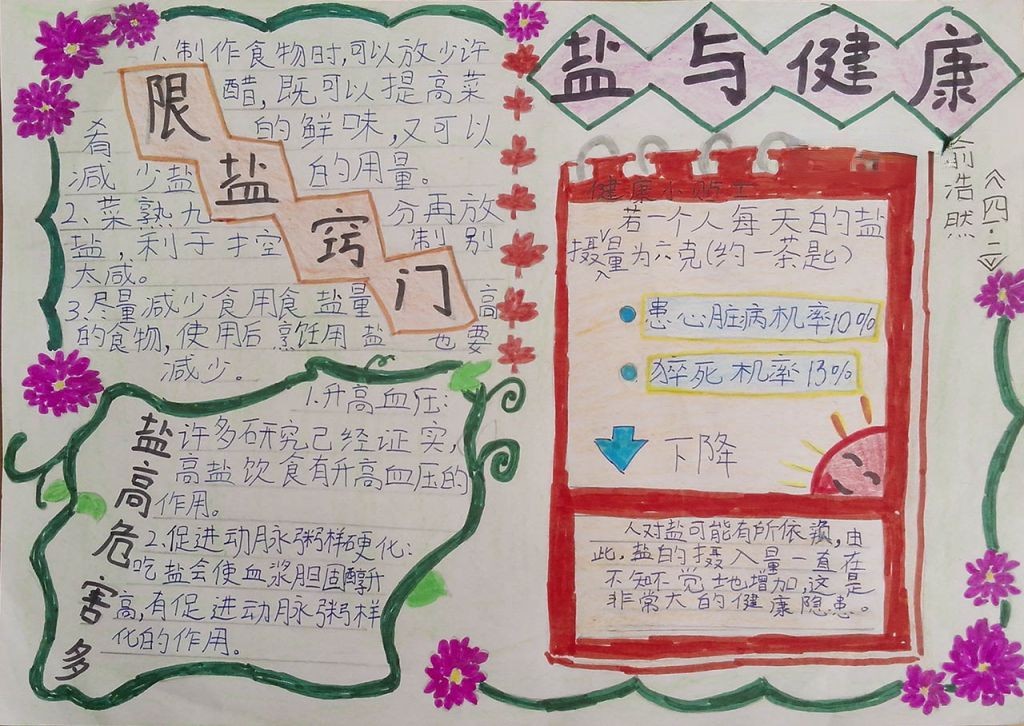 盐与健康
俞浩然
《四·二》
限盐窍门
1.制作食物时,可以放少许
醋,既可以提高菜
肴的鲜味,又可以
减少盐的用量。
2、菜熟九分再放
盐,利于控制别
太咸。
3.尽量减少食用食盐量高
的食物,使用后烹饪用盐也要
减少。
健康小贴士
若一个人每天白的盐
摄入量为六克(约一茶匙)
患心脏病机率10%
猝死机率13%
下降
人对盐可能有所依赖,由
此,盐的摄入量一直在
不知不觉地增加,这是
非常大的健康隐患。
盐高危害多
1.升高血压:
许多研究已经证实,
高盐饮食有升高血压的
作用。
2.促进动脉粥样硬化:
吃盐会使血浆胆固醇升
高,有促进动脉粥样
化的作用。